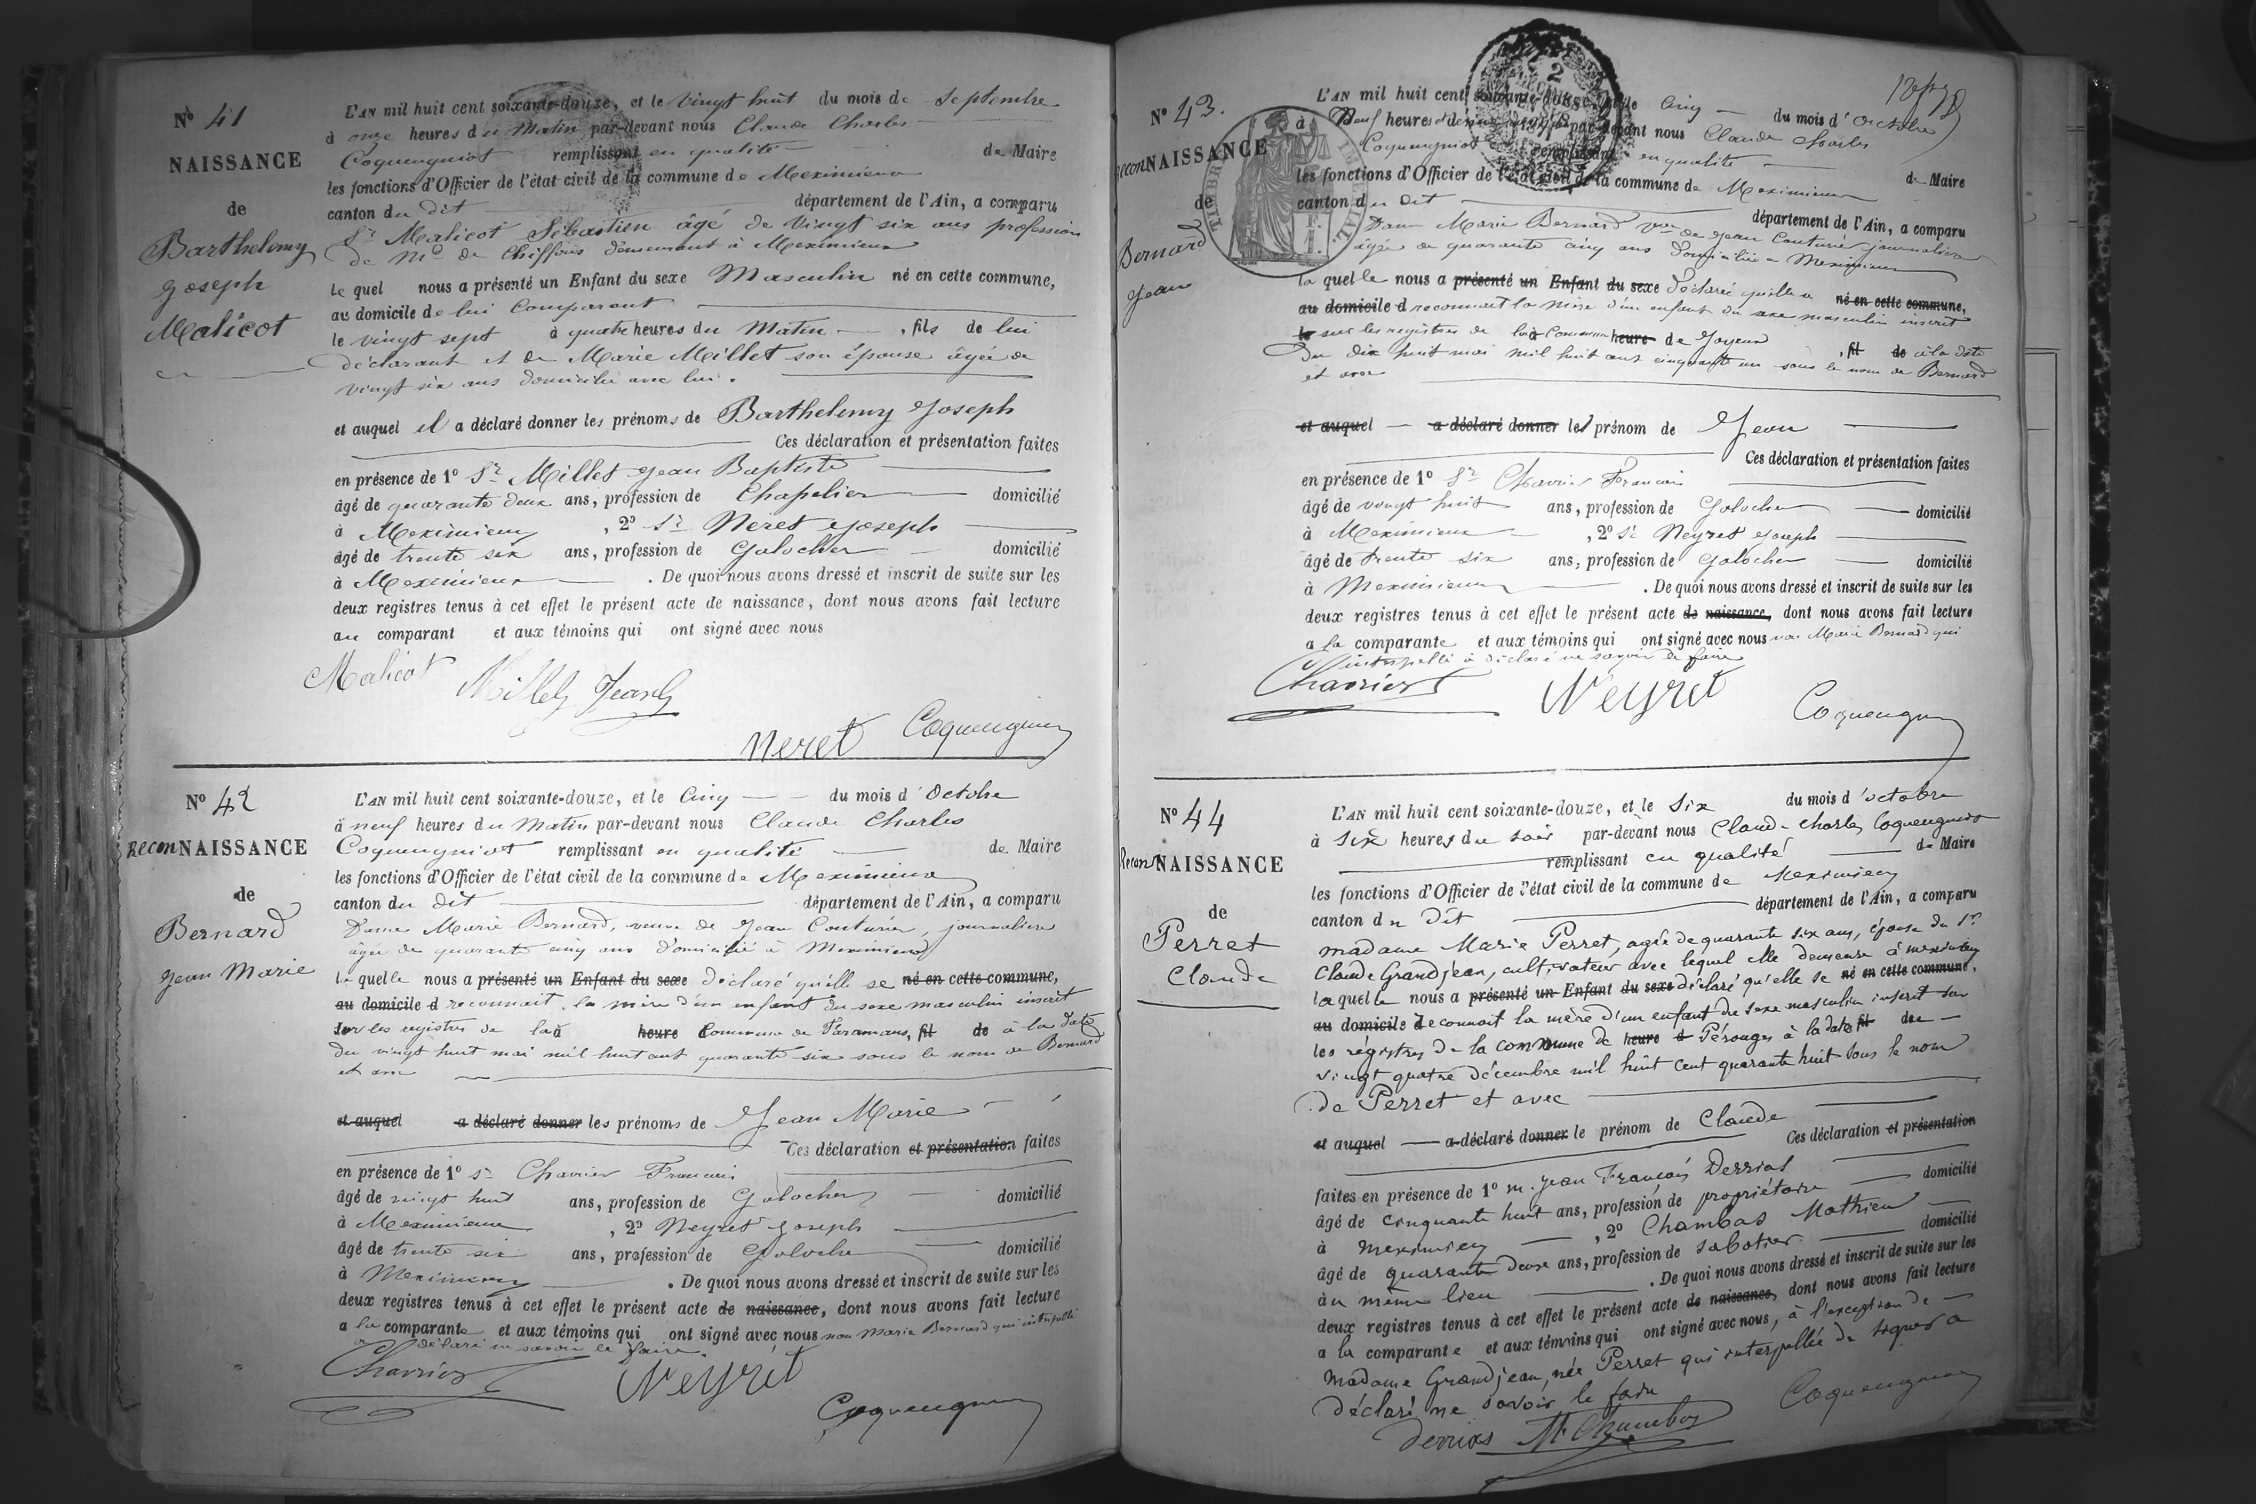 Nº 41
NAISSANCE
de
Barthelemy
Joseph
Malicot
L'AN mil huit cent soixante-douze, et le vingt huit du mois de Septembre
à onze heures du Matin par-devant nous Claude Charles
Coquengniot remplissant en qualité de Maire
les fonctions d'Officier de l'état civil de la commune de Meximieux
canton du dit département de l'Ain, a comparu
Sr Malicot Sébastien âgé de vingt six ans profession
de Md de Chiffons demeurant à Meximieux
le quel nous a présenté un Enfant du sexe Masculin né en cette commune,
au domicile de lui Comparant
le vingt sept à quatre heures du Matin, fils de lui
déclarant et de Marie Millet son épouse âgée de
vingt six ans domiciliée avec lui.
et auquel il a déclaré donner les prénoms de Barthelemy Joseph
Ces déclaration et présentation faites
en présence de 1º Sr Millet Jean Baptiste
âgé de quarante deux ans, profession de Chapelier domicilié
à Meximieux, 2º Sr Neret Joseph
âgé de trente six ans, profession de Galocher domicilié
à Meximieux. De quoi nous avons dressé et inscrit de suite sur les
deux registres tenus à cet effet le présent acte de naissance, dont nous avons fait lecture
au comparant et aux témoins qui ont signé avec nous
Malicot Millet Jean
Neret Coquengniot
Nº 42
RECONNAISSANCE
de
Bernard
Jean Marie
L'AN mil huit cent soixante-douze, et le Cinq du mois d'Octobre
à neuf heures du Matin par-devant nous Claude Charles
Coquengniot remplissant en qualité de Maire
les fonctions d'Officier de l'état civil de la commune de Meximieux
canton du dit département de l'Ain, a comparu
Dame Marie Bernard, veuve de Jean Couturier, journalière
âgée de quarante cinq ans domiciliée à Meximieux
laquelle nous a présenté un Enfant du sexe déclaré qu'elle se né en cette commune,
au domicile d reconnait la mère d'un enfant du sexe masculin inscrit
sur les registres de la à heure Commune de Faramans, fil de à la date
du vingt huit mai mil huit cent quarante six sous le nom de Bernard
et avec
et auquel a déclaré donner les prénoms de Jean Marie
Ces déclaration et présentation faites
en présence de 1º Sr Chavrier Francois
âgé de vingt huit ans, profession de Galocher domicilié
à Meximieux, 2º Neyret Joseph
âgé de trente six ans, profession de Galocher domicilié
à Meximieux. De quoi nous avons dressé et inscrit de suite sur les
deux registres tenus à cet effet le présent acte de naissance, dont nous avons fait lecture
a la comparante et aux témoins qui ont signé avec nous non Marie Bernard qui interpellé
a déclaré ne savoir le faire.
Chavrier Neyret
Coquengniot
Nº 43.
reconNAISSANCE
de
Bernard
Jean
TIMBRE IMPERIAL
1 F.
2
L'AN mil huit cent soixante-douze, et le Cinq du mois d'Octobre
à Neuf heures et demie par-devant nous Claude Charles
Coquengniot remplissant en qualité de Maire
les fonctions d'Officier de l'état civil de la commune de Meximieux
canton du dit département de l'Ain, a comparu
Dame Marie Bernard Vve de Jean Couturier journalière
âgée de quarante cinq ans domiciliée à Meximieux
la quelle nous a présenté un Enfant du sexe déclaré qu'elle se né en cette commune,
au domicile d reconnait la mère d'un enfant du sexe masculin inscrit
le sur les registres de la à Commune heure de Joyeux, fil de à la date
du dix huit mai mil huit cent cinquante un sous le nom de Bernard
et avec
et auquel a déclaré donner le prénom de Jean
Ces déclaration et présentation faites
en présence de 1º Sr Chavrier Francois
âgé de vingt huit ans, profession de Galocher domicilié
à Meximieux, 2º Sr Neyret Joseph
âgé de trente six ans, profession de Galocher domicilié
à Meximieux. De quoi nous avons dressé et inscrit de suite sur les
deux registres tenus à cet effet le présent acte de naissance, dont nous avons fait lecture
a la comparante et aux témoins qui ont signé avec nous non Marie Bernard qui
interpellé à déclaré ne savoir le faire
Chavrier Neyret Coquengniot
Nº 44
ReconNAISSANCE
de
Perret
Claude
L'AN mil huit cent soixante-douze, et le Six du mois d'octobre
à six heures du soir par-devant nous Claude Charles Coquengniot
remplissant en qualité de Maire
les fonctions d'Officier de l'état civil de la commune de Meximieux
canton du dit département de l'Ain, a comparu
madame Marie Perret, agée de quarante six ans, épouse du Sr
Claude Grandjean, cultivateur avec lequel elle demeure à meximieux
laquelle nous a présenté un Enfant du sexe déclaré qu'elle se né en cette commune,
au domicile de reconnait la mère d'un enfant du sexe masculin inscrit sur
les régistres de la commune de heure d Pérouges à la date fil du
vingt quatre décembre mil huit cent quarante huit sous le nom
de Perret et avec
et auquel a déclaré donner le prénom de Claude
Ces déclaration et présentation
faites en présence de 1º M. Jean François Derrias domicilié
âgé de cinquante huit ans, profession de propriétaire
à meximieux, 2º Chambas Mathieu domicilié
âgé de quarante deux ans, profession de sabotier
au même lieu. De quoi nous avons dressé et inscrit de suite sur les
deux registres tenus à cet effet le présent acte de naissance, dont nous avons fait lecture
a la comparante et aux témoins qui ont signé avec nous, à l'exception de
Madame Grandjean, née Perret qui interpellée de signer a
déclaré ne savoir le faire
Derrias M. Chambas Coquengniot